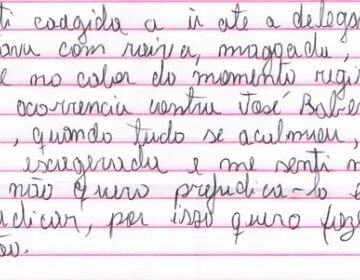 ti coagida a ir ate a delega
tava com raiva, magoada,
e no calor do momento regi
ocorrencia contra José Bab
, quando tudo se acalmou,
exagerada e me senti m
não quero prejudica-lo e
udicar, por isso quero faze
ão.